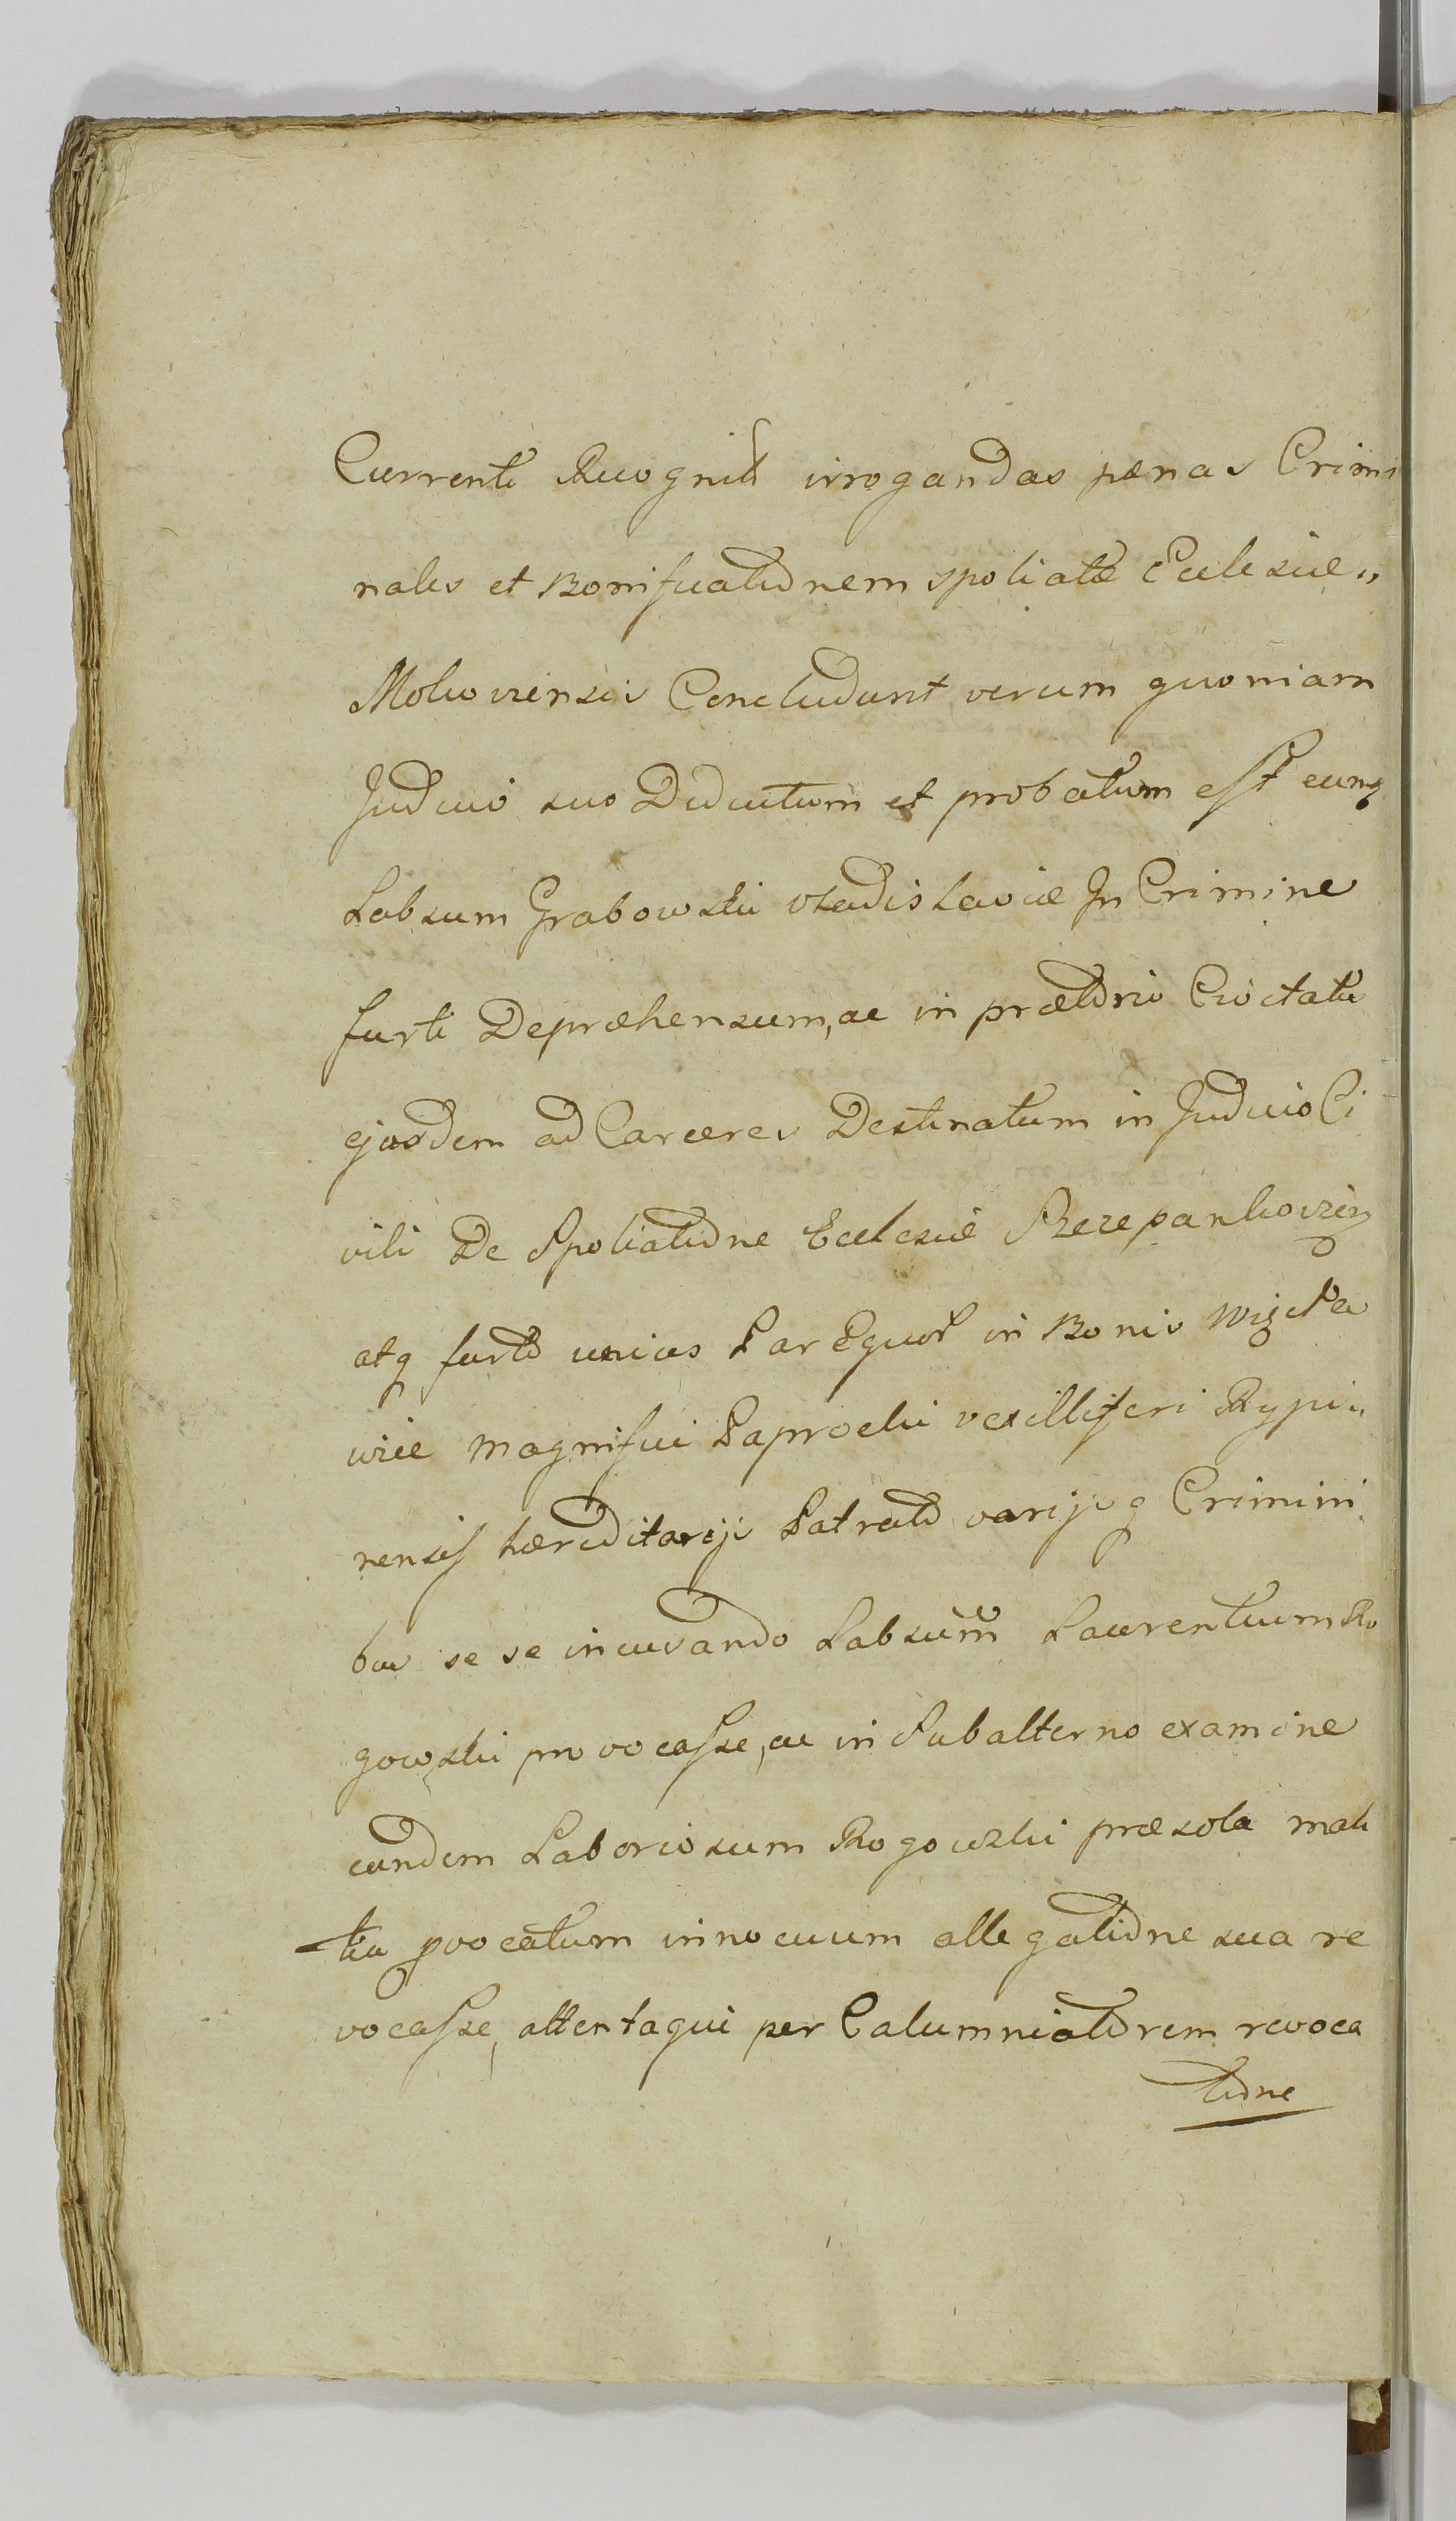 Currenti Recognit irrogandas pænas Crimi
nales et Bonificationem spoliatæ Ecclesiæ„
Mokowiensis Concludunt verum quoniam
Judicio suo Deductum et probatum est eunq
Labsum Grabowski Vladislaviæ In Crimine
furti Depræhensum, ac in prætorio Civitatis
ejusdem ad Carceres Destinatum in Judicio Ci
vili De Spoliatione Ecclesiæ Szczepankowien
atq furto unius Par Equor in Bonis
wiie Magnifici Paprocki vexilliferi Rypi„
nensis hæreditarijs Patrato varijsq Crimini
bus se se incusando Labsum Laurentium Ro
gowski provocasse, ac in Subalterno examine
eundem Laboriosum Rogowski præ sola mali
tia pvocatum innocuum allegatione sua re
vocasse, attentaque per Calumniatorem revoca
tione